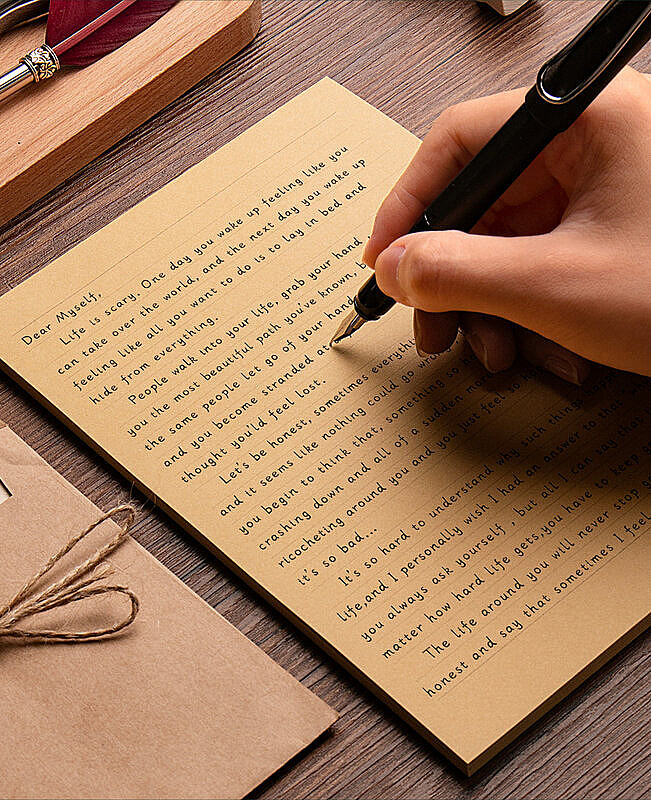 Dear Myself,
Life is scary. One day you wake up feeling like you
can take over the world, and the next day you wake up
feeling like all you want to do is to lay in bed and
hide from everything.
People walk into your life, grab your hand,
you the most beautiful path you've known,
the same people let go of your hand
and you become stranded
thought you'd feel lost.
Let's be honest, sometimes everything
and it seems like nothing could go
you begin to think that, something so
crashing down and all of a sudden,
ricocheting around you and you just feel so
it's so bad...
It's so hard to understand why such things
life,and I personally wish I had an answer to that
you always ask yourself , but all I can say
matter how hard life gets,you have to keep
The life around you will never stop
honest and say that sometimes I feel